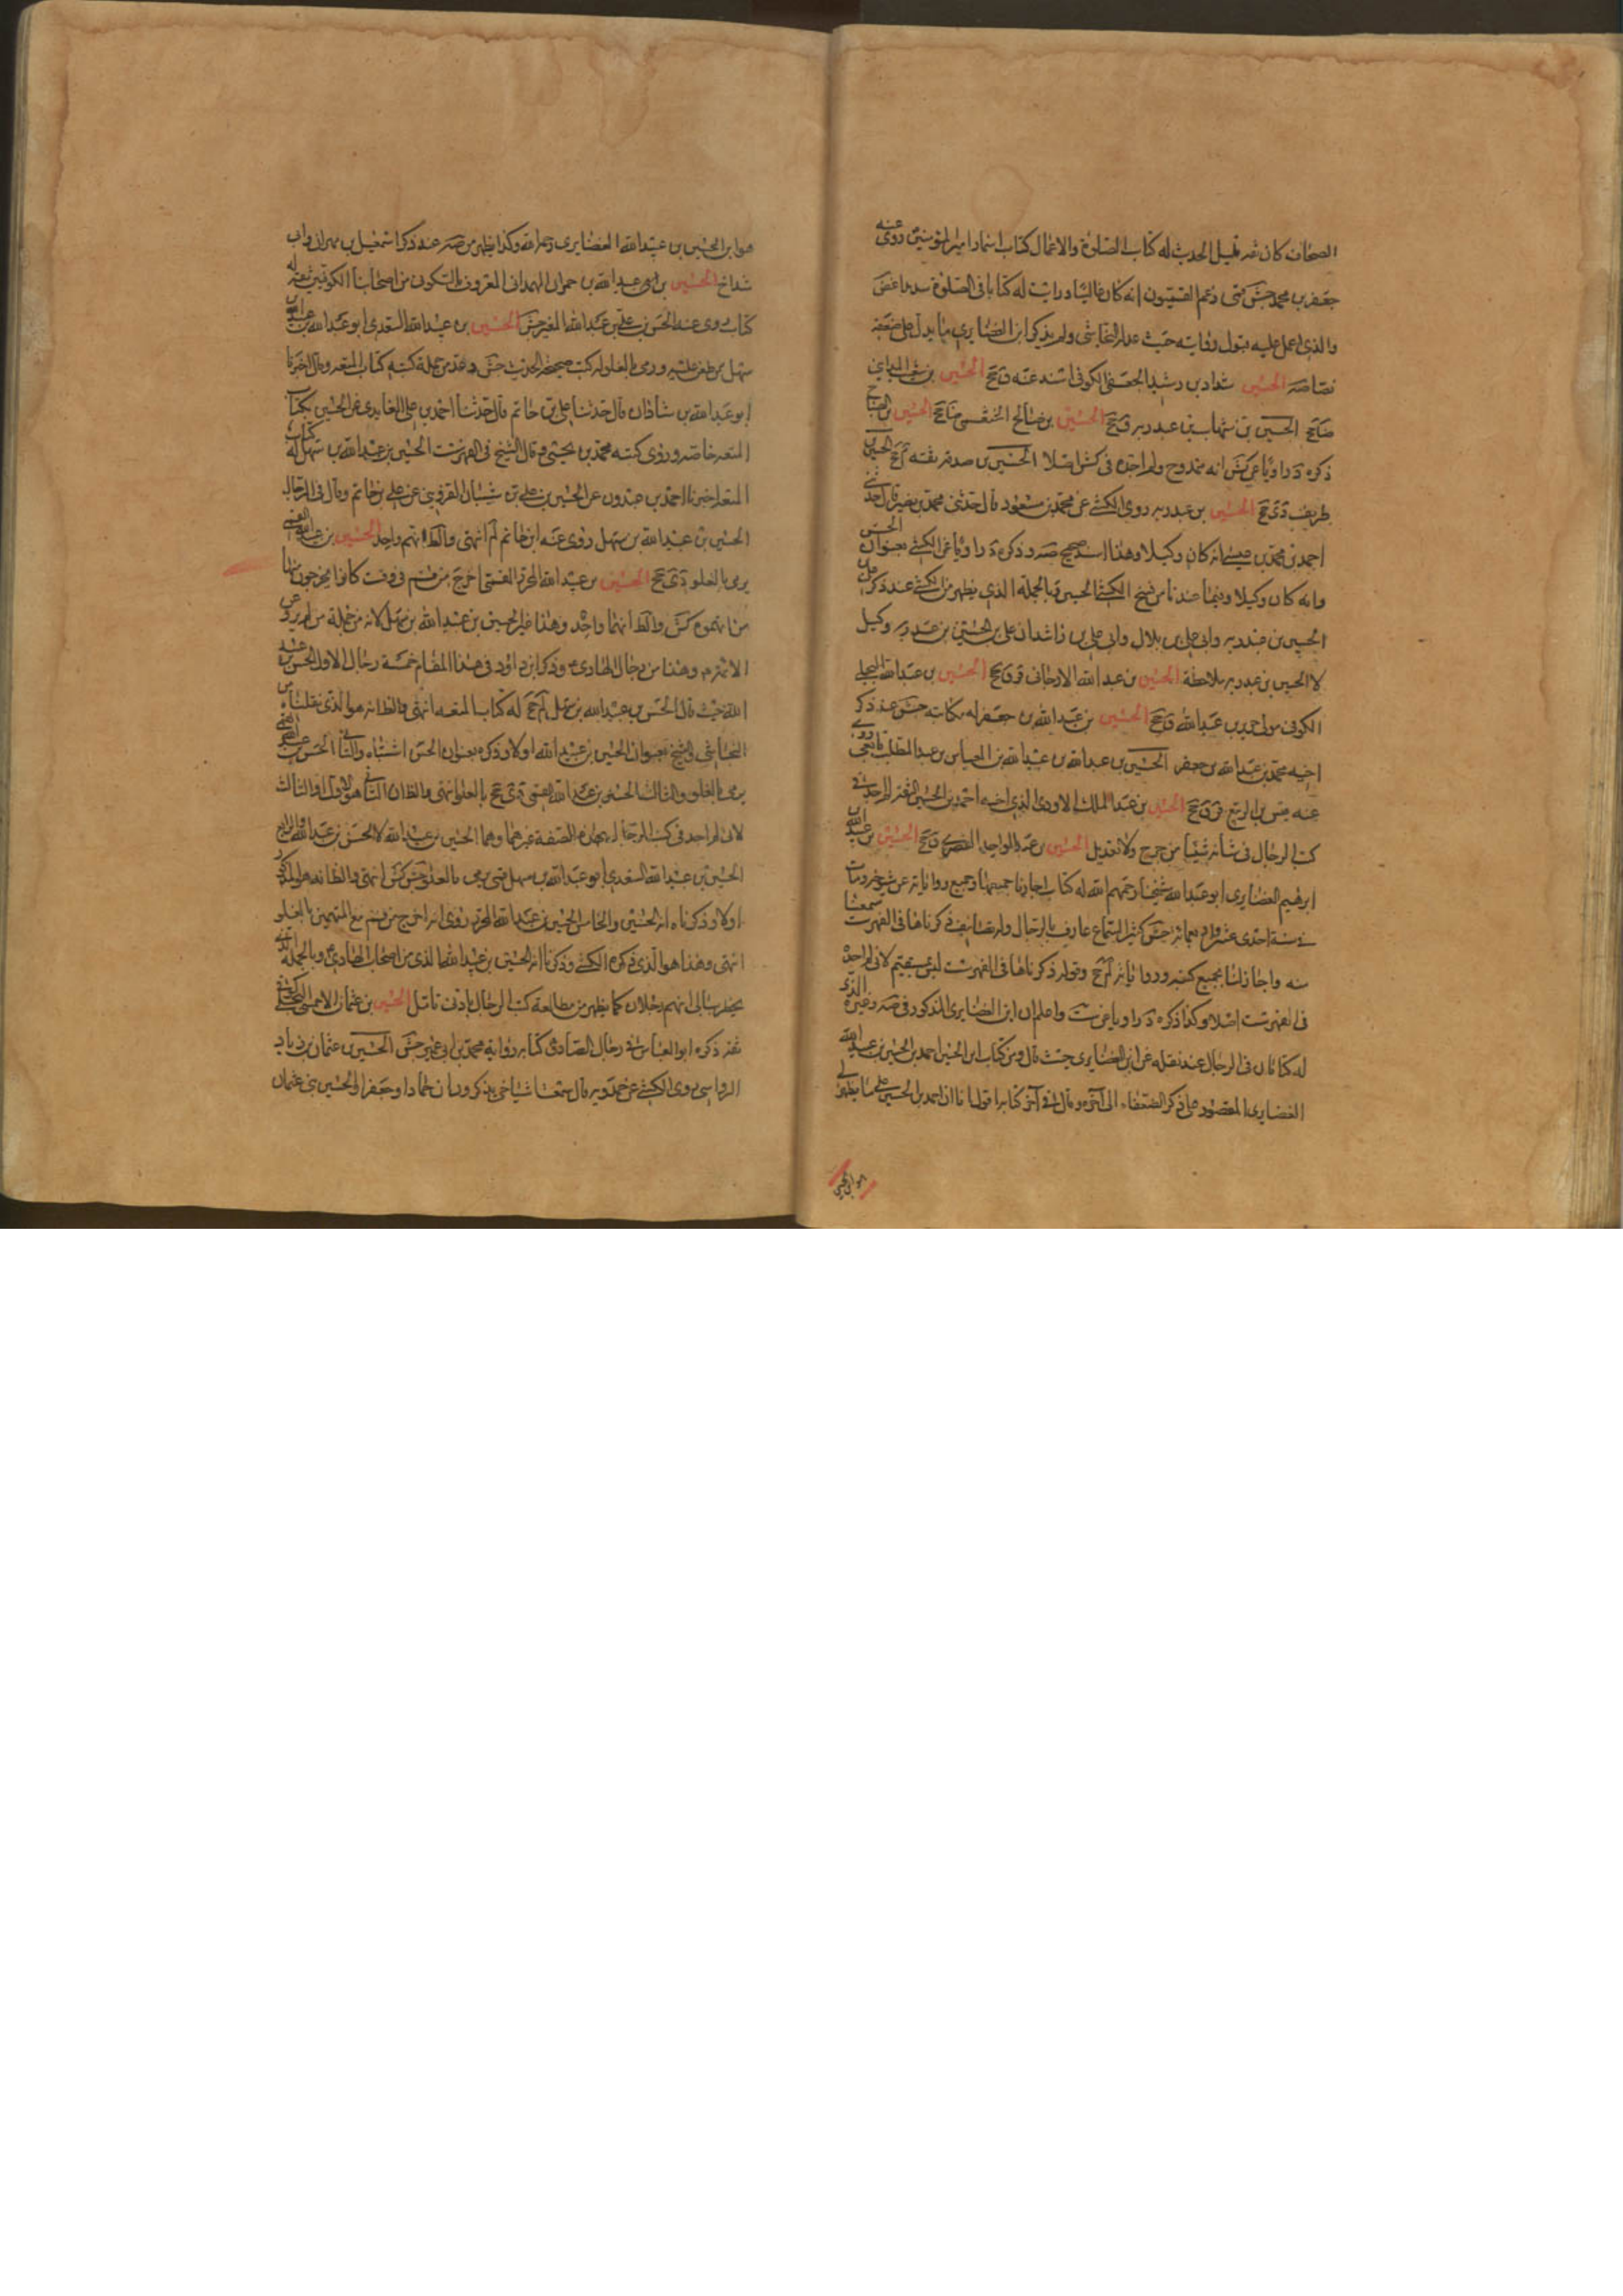 الصحاف كان ثقة قليل الحديث له كتاب الصلوة والاعمال كتاب اسماء امير المؤمنين روى عنه
جعفر بن محمد جش ضى زعم القميون انه كان غاليا ورايت له كتابا فى الصلوة سديدا غض
والذى اعمل عليه قبول روايته حيث عدله النجاشى ولم يذكر ابن الغضايرى ما يدل على ضعفه
نصا صه الحسين شداد بن رشيد الجعفى الكوفى اسند عنه ق جح الحسين بن
الحسين بن شهاب بن عبد ربه ق جح الحسين بن صالح الخثعمى ضا جح الحسين بن
ذكره د راويا عن كش انه ممدوح ولم اجده فى كش اصلا الحسين بن صدقة ثقة لم جح الحسين بن
ظريف دى جح الحسين بن عبد ربه روى الكشى عن محمد بن مسعود قال حدثنى محمد بن نصير قال حدثنى
احمد بن محمد بن عيسى انه كان وكيلا وهذا السند صحيح صه وذكره د راويا عن الكشى بعنوان الحسن
وانه كان وكيلا وفيما عندنا من نسخ الكشى الحسين وبالجملة الذى يظهر من الكشى عند ذكر
الحسين بن عبد ربه وابى على بن بلال وابى على بن راشد ان على بن الحسين بن عبد ربه وكيل
لا الحسين بن عبد ربه بملاحظة الحسين بن عبد الله الارجانى قر ق جح الحسين بن عبد الله البجلى
الكوفى مولى جرير بن عبد الله ق جح الحسين بن عبد الله بن جعفر له مكاتبة جش عند ذكر
اخيه محمد بن عبد الله بن جعفر الحسين بن عبد الله بن عبيد الله بن العباس بن عبد المطلب تابعى روى
عنه قيس بن الربيع قر ق جح الحسين بن عبد الملك الاودى الذى اخيه احمد بن الحسين الثقة لم اجد فى
كتب الرجال فى شانه شيئا من جرح ولا تعديل الحسين بن عبد الواحد القصرى ق جح الحسين بن عبيد الله بن
ابرهيم الغضايرى ابو عبد الله شيخنا رحمهم الله له كتاب اجازنا جميعها وجميع رواياته عن شيوخه ومات
فى سنة احدى عشر واربعمائة جش كثير السماع عارف بالرجال وله تصانيف ذكرناها فى الفهرست سمعنا
منه واجاز لنا بجميع كتبه ورواياته لم جح وقوله ذكرناها فى الفهرست ليس بمستقيم لانى لم اجده
فى الفهرست اصلا وكذا ذكره د راويا عن ست واعلم ان ابن الغضايرى المذكور فى صه وغيره الذى
له كتابان فى الرجال عند نقله عن ابن الغضايرى حيث قال ومن كتاب ابى الحسين احمد بن الحسين بن عبيد الله
الغضايرى المقصور على ذكر الضعفاء الى آخره وقال فى آخر كتابه اقول انا ان احمد بن الحسين على ما يظهر لى
هو ابن الحسين
هو ابن الحسين بن عبيد الله الغضايرى رحمه الله وكذا يظهر من صه عند ذكر اسمعيل بن مهران وابى
شداخ الحسين بن ابى عبد الله بن حمران الهمدانى المعروف بالسكونى من اصحابنا الكوفيين ثقة له
كتاب روى عنه الحسن بن على بن عبد الله المغيرة جش الحسين بن عبيد الله السعدى ابو عبد الله بن عبيد الله بن
سهل ممن طعن عليه ورمى بالغلو له كتب صحيحة الحديث جش وعد من جملة كتبه كتاب المتعة وقال اخبرنا
ابو عبد الله بن شاذان قال حدثنا على بن حاتم قال حدثنا احمد بن على الفايدى عن الحسين بكتاب
المتعة خاصة وروى كتبه محمد بن يحيى وقال الشيخ فى الفهرست الحسين بن عبيد الله بن سهل له كتاب
المتعة اخبرنا احمد بن عبدون عن الحسين بن على بن شيبان القزوينى عن على بن حاتم وقال فى الرجال
الحسين بن عبيد الله بن سهل روى عنه ابن حاتم لم انتهى والظ انهم واحد الحسين بن عبيد الله القمى
يرمى بالغلو دى جح الحسين بن عبيد الله المحرر القمى اخرج من قم فى وقت كانوا يخرجون منها
من اتهموه كش والظ انهما واحد وهذا غير الحسين بن عبيد الله بن سهل لانه من جملة من لم يرو عن
الائمة م وهذا من رجال الهادى ع وذكر ابن داود فى هذا المقام خمسة رجال الاول الحسن بن عبيد
الله حيث قال الحسن بن عبيد الله بن سهل لم جح له كتاب المتعة انتهى والظ انه هو الذى نقلناه من
النجاشى والشيخ بعنوان الحسين بن عبيد الله اولا وذكره بعنوان الحسن اشتباه والثانى الحسن بن عبيد الله القمى
يرمى بالغلو والثالث الحسين بن عبيد الله القمى دى جح بالغلو انتهى والظ ان الثانى هو الاول او الثالث
لانى لم اجد فى كتب الرجال بهذه الصفة غيرهما وهما الحسين بن عبيد الله لا الحسن بن عبيد الله والرابع
الحسين بن عبيد الله السعدى ابو عبد الله بن سهل ضى رمى بالغلو جش كش انتهى والظ انه هو المذكور
اولا وذكرناه انه الحسين والخامس الحسين بن عبيد الله المحرر روى انه اخرج من قم مع المتهمين بالغلو
انتهى وهذا هو الذى ذكره الكشى وذكرنا انه الحسين بن عبيد الله الذى من اصحاب الهادى ع وبالجملة الذى
يخطر ببالى انهم رجلان كما يظهر من مطالعة كتب الرجال بادنى تامل الحسين بن عثمان الاحمسى البجلى كوفى
ثقة ذكره ابو العباس فى رجال الصادق ع كتابه رواية محمد بن ابى عمير جش الحسين بن عثمان بن زياد
الرواسى روى الكشى عن حمدويه قال سمعت اشياخى يذكرون ان حمادا وجعفرا والحسين بنى عثمان